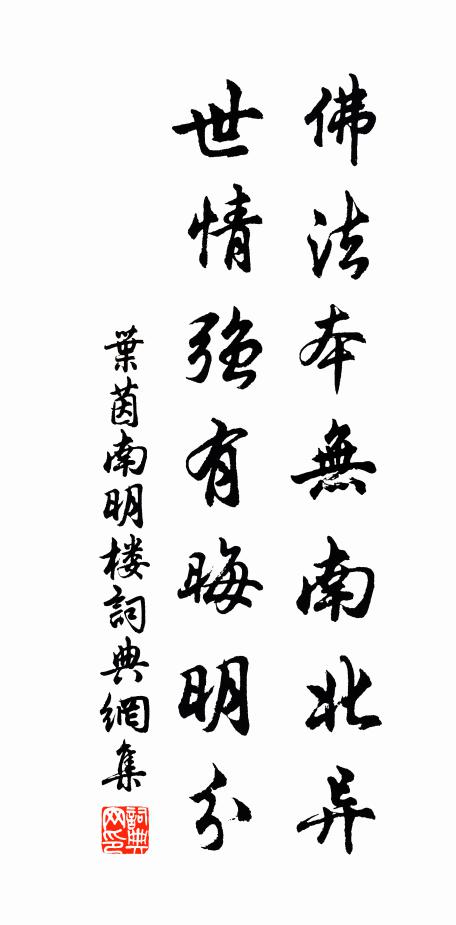 佛法本無南北异
世情強有晦明分
葉茵南明楼詞典網集
詞典网印